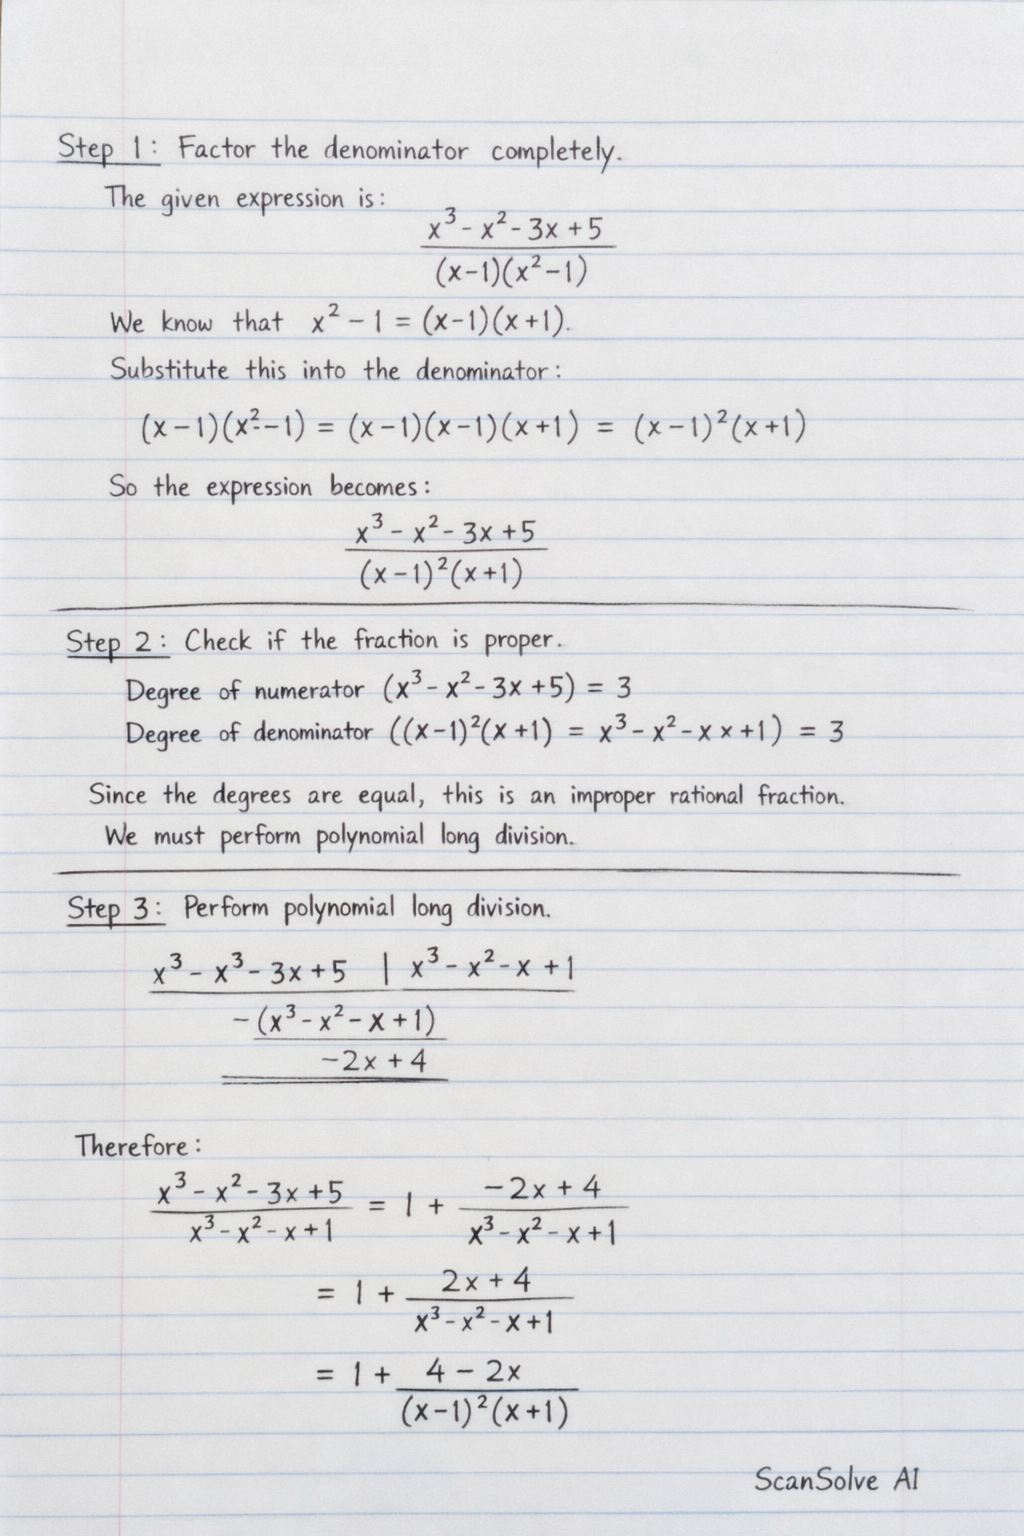 Step 1: Factor the denominator completely.
The given expression is:
x³ - x² - 3x + 5
(x-1)(x²-1)
We know that x² - 1 = (x-1)(x+1).
Substitute this into the denominator:
(x-1)(x²-1) = (x-1)(x-1)(x+1) = (x-1)²(x+1)
So the expression becomes:
x³ - x² - 3x + 5
(x-1)²(x+1)
Step 2: Check if the fraction is proper.
Degree of numerator (x³ - x² - 3x + 5) = 3
Degree of denominator ((x-1)²(x+1) = x³ - x² - x x + 1) = 3
Since the degrees are equal, this is an improper rational fraction.
We must perform polynomial long division.
Step 3: Perform polynomial long division.
x³ - x³ - 3x + 5 | x³ - x² - x + 1
-(x³ - x² - x + 1)
-2x + 4
Therefore:
x³ - x² - 3x + 5 = 1 + -2x + 4
x³ - x² - x + 1 x³ - x² - x + 1
= 1 + 2x + 4
x³ - x² - x + 1
= 1 + 4 - 2x
(x-1)²(x+1)
ScanSolve AI